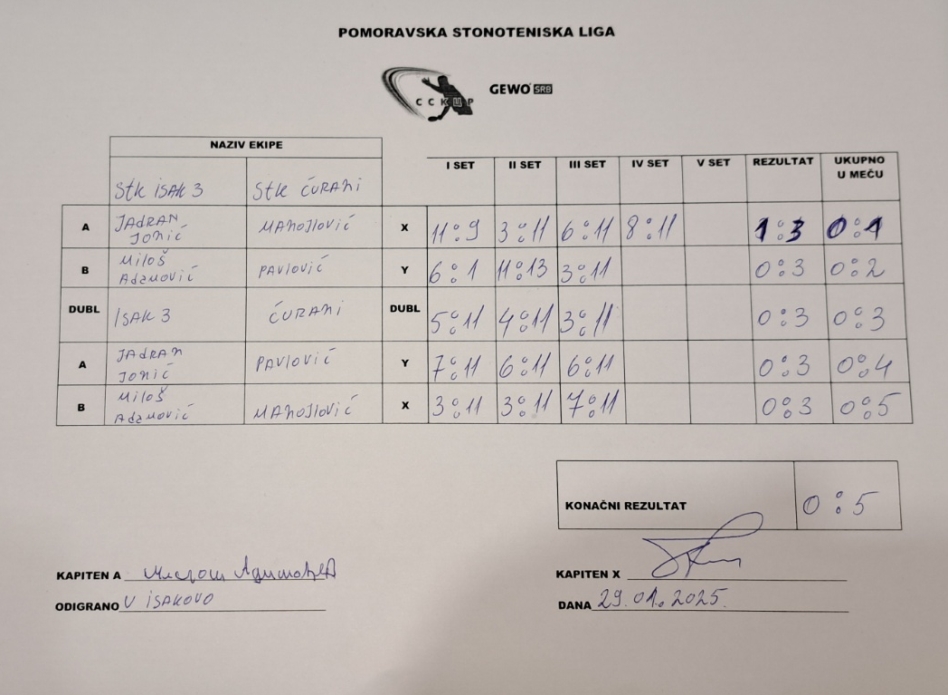 POMORAVSKA STONOTENISKA LIGA
CCKUP
GEWO SRB
NAZIV EKIPE
I SET II SET III SET IV SET V SET REZULTAT UKUPNO U MEČU
Stk ISAK 3 Stk ĆURANI
A JADRAN JONIĆ MANOJLOVIĆ X 11:9 3:11 6:11 8:11 1:3 0:1
B MILOŠ ADAMOVIĆ PAVLOVIĆ Y 6:1 11:13 3:11 0:3 0:2
DUBL ISAK 3 ĆURANI DUBL 5:11 4:11 3:11 0:3 0:3
A JADRAN JONIĆ PAVLOVIĆ Y 7:11 6:11 6:11 0:3 0:4
B MILOŠ ADAMOVIĆ MANOJLOVIĆ X 3:11 3:11 7:11 0:3 0:5
KONAČNI REZULTAT 0:5
KAPITEN A
KAPITEN X
ODIGRANO U ISAKOVO
DANA 29.01.2025.